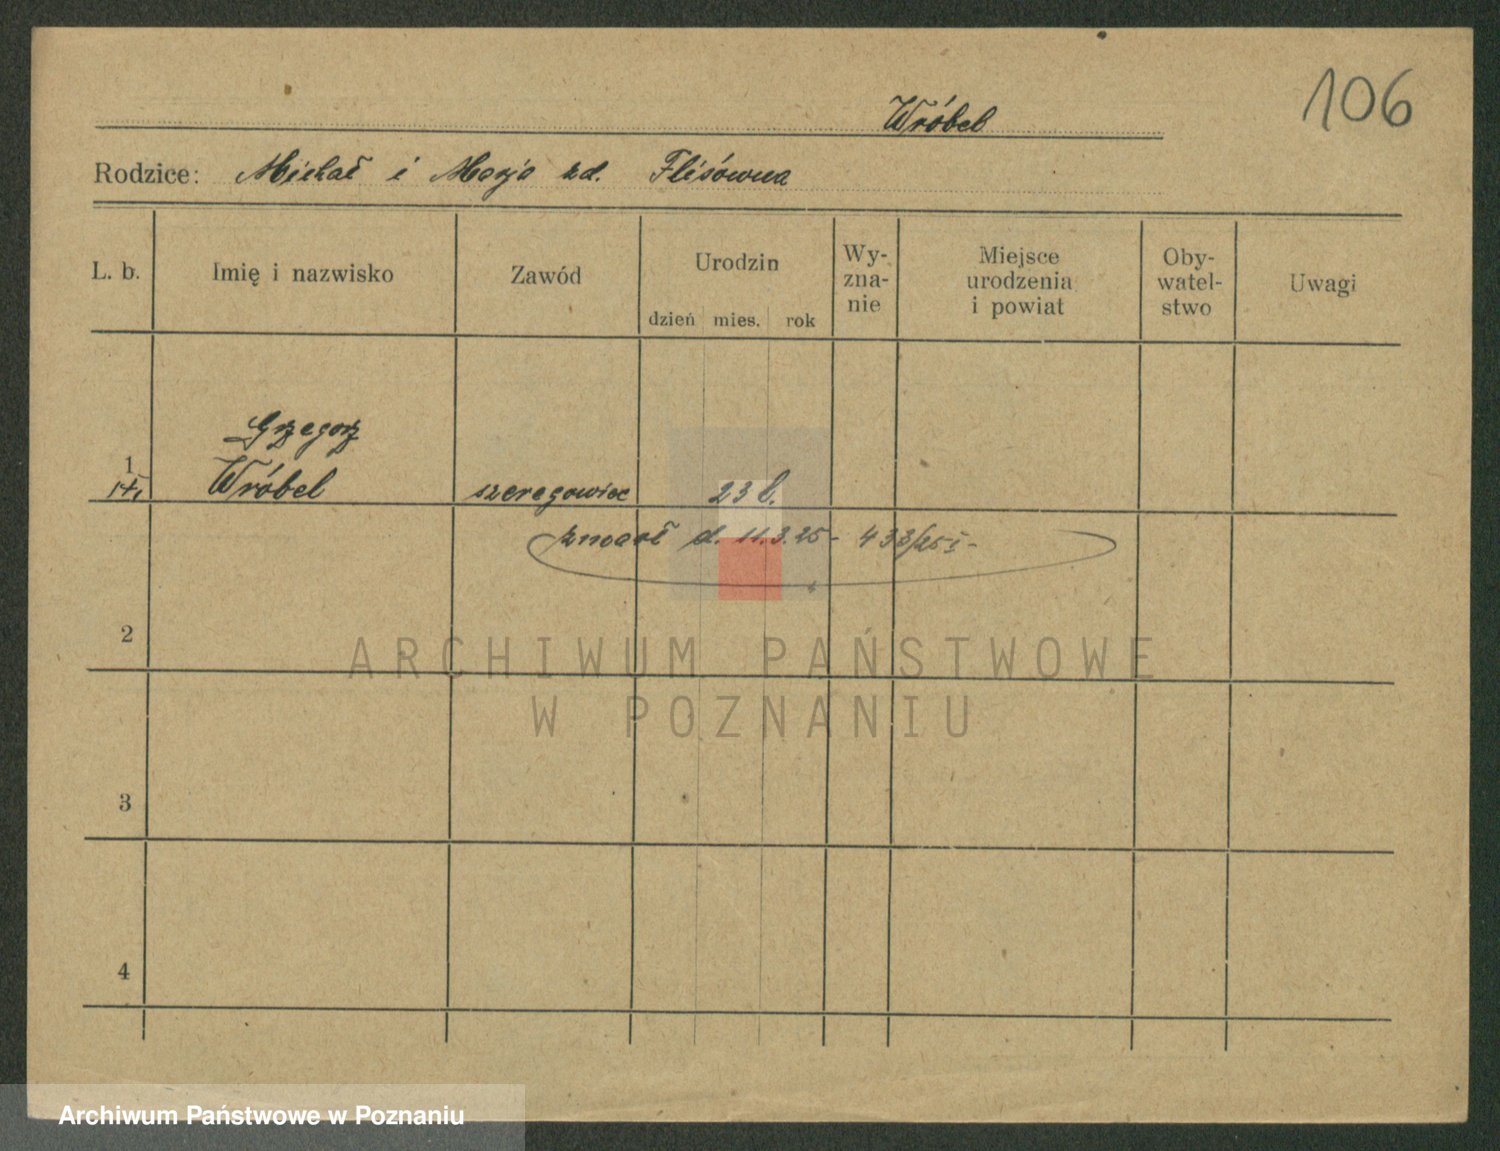 106
Wróbel
Rodzice: Michał i Marja zd. Flisówna
L. b.
Imię i nazwisko
Zawód
Urodzin
dzień mies. rok
Wy-
zna-
nie
Miejsce
urodzenia
i powiat
Oby-
watel-
stwo
Uwagi
Grzegorz
1
Wróbel szeregowiec 23 l.
zmarł d. 11.3.25 - 433/25 I -
2
ARCHIWUM PAŃSTWOWE
W POZNANIU
3
4
Archiwum Państwowe w Poznaniu